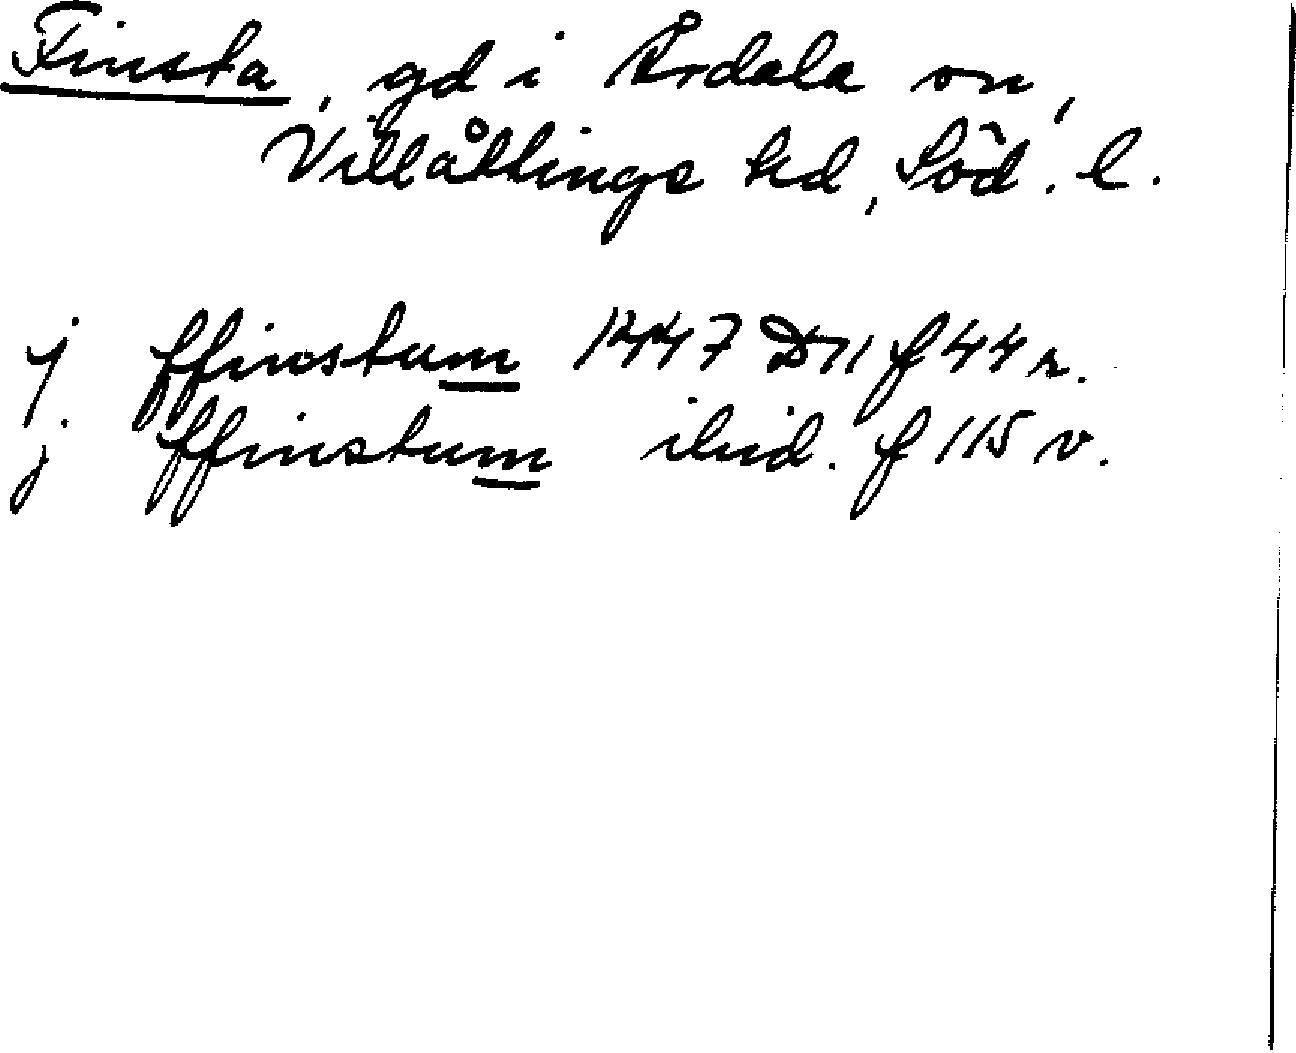 Finsta, gd i Årdala sn,
Villåttinge hd, Söd. l.
j ffinostum 1447 D 11 f 44 r.
j ffinstum ibid. f 115 v.